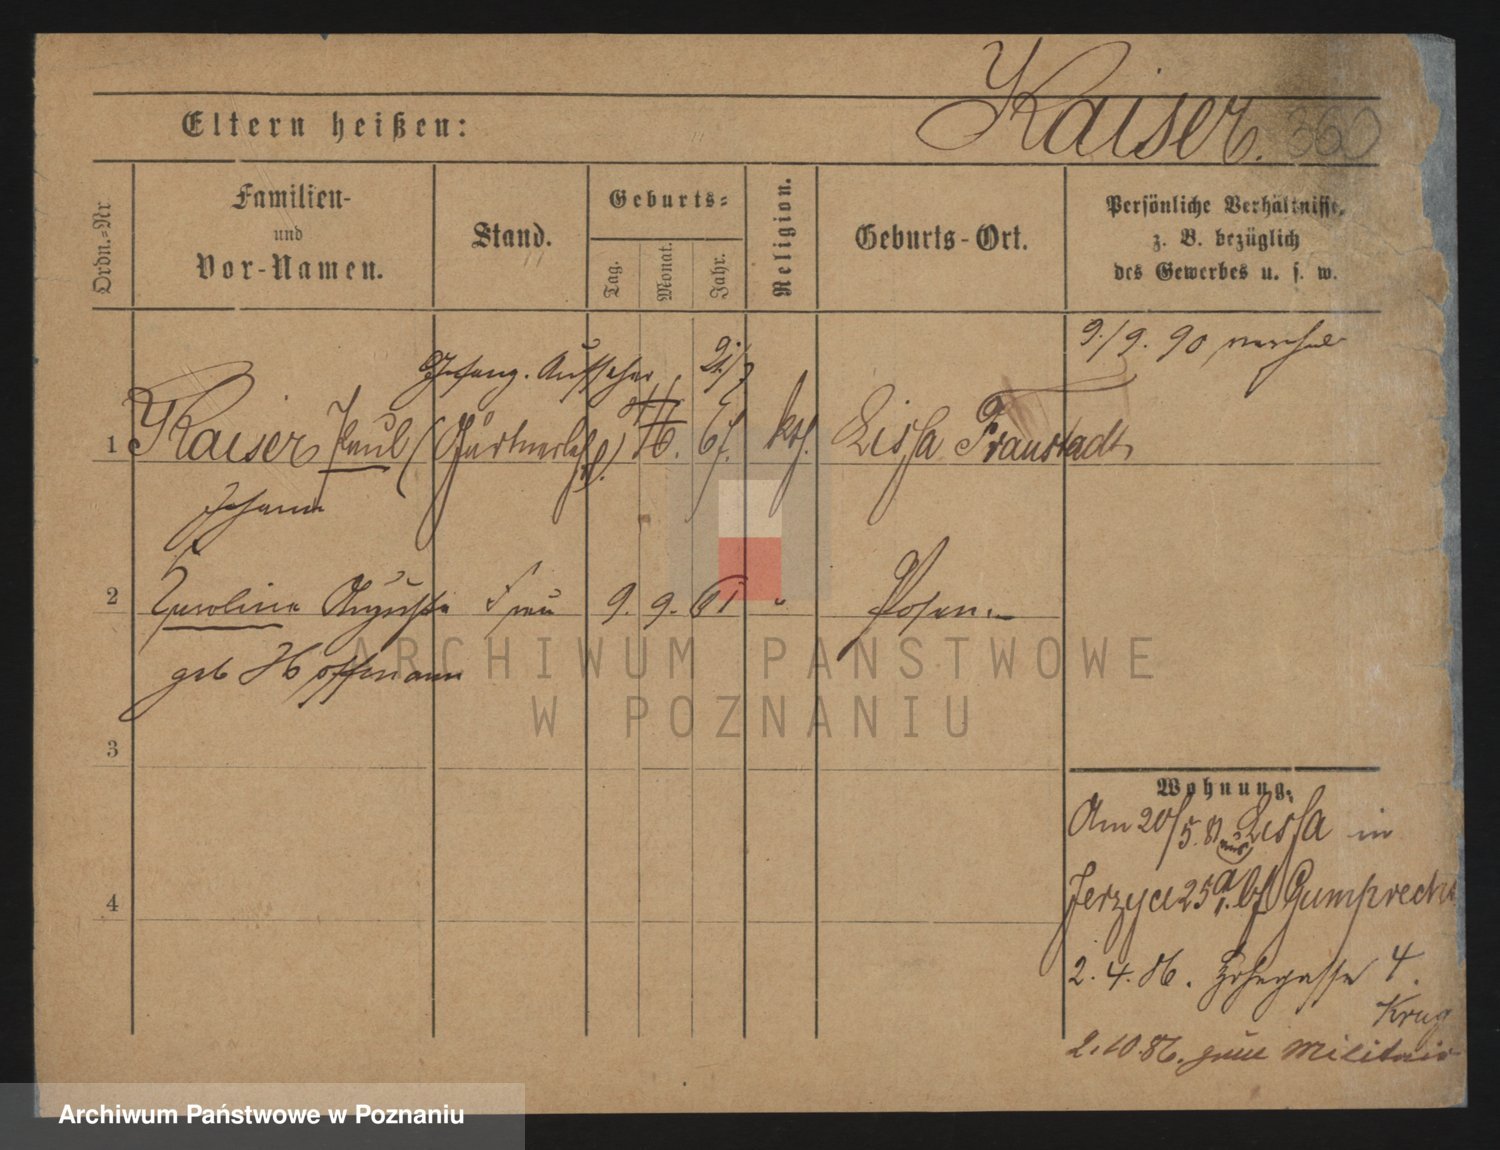 Kaiser. 360
Eltern heißen:
Ordn.-Nr
Familien-
und
Vor-Namen.
Stand.
Geburts-
Tag.
Monat.
Jahr.
Religion.
Geburts-Ort.
Persönliche Verhältnisse,
z. B. bezüglich
des Gewerbes u. s. w.
9./9. 90
Gefang. Aufseher
1 Kaiser Paul Lissa Fraustadt
Johann
2 Karoline Auguste Frau 9. 9. 61 " Posen
geb Hoffmann
3
4
Wohnung.
Am 20/5. 81 aus Lissa in
Jerzyce 25a. bf Gumprecht
2. 4. 86. 4.
Krug
2. 10. 86. zum Militair
ARCHIWUM PAŃSTWOWE
W POZNANIU
Archiwum Państwowe w Poznaniu